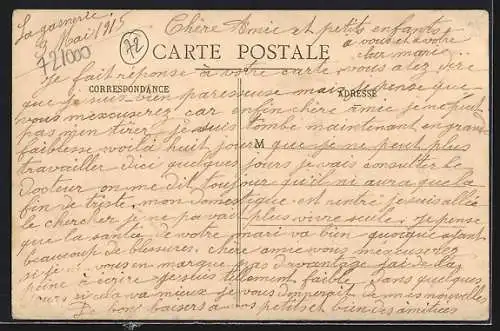 La gasnerie
9 Mai 1915
72000
72
Chère Amie et petits enfants
a vous et a votre
cher mari
CARTE POSTALE
CORRESPONDANCE
ADRESSE
M
Je fait réponse à votre carte, vous alez dire
que je suis bien paresseuse mais je pense que
vous m'exuserez car enfin chère Amie je ne peut
pas m'en tirer je suis tombé maintenant en grande
faiblesse voilà huit jour que je ne peut plus
travailler d'ici quelques jours je vais consulter le
docteur on me dit toujour qu'il ni aura que la
fin de triste, mon domestique est rentré je suis allée
le chercher je ne pouvait plus vivre seule. Je pense
que la santé de votre mari va bien quoique ayant
beaucoup de blessures. Chère amie vous m'exuserez
si je ne vous en marque pas d'avantage j'ai de la
peine à écrire je suis tellement faible. Dans quelques
jours si cela va mieux je vous donnerait de mes nouvelles
Le bon baisers à vos petits et bien des amitiées